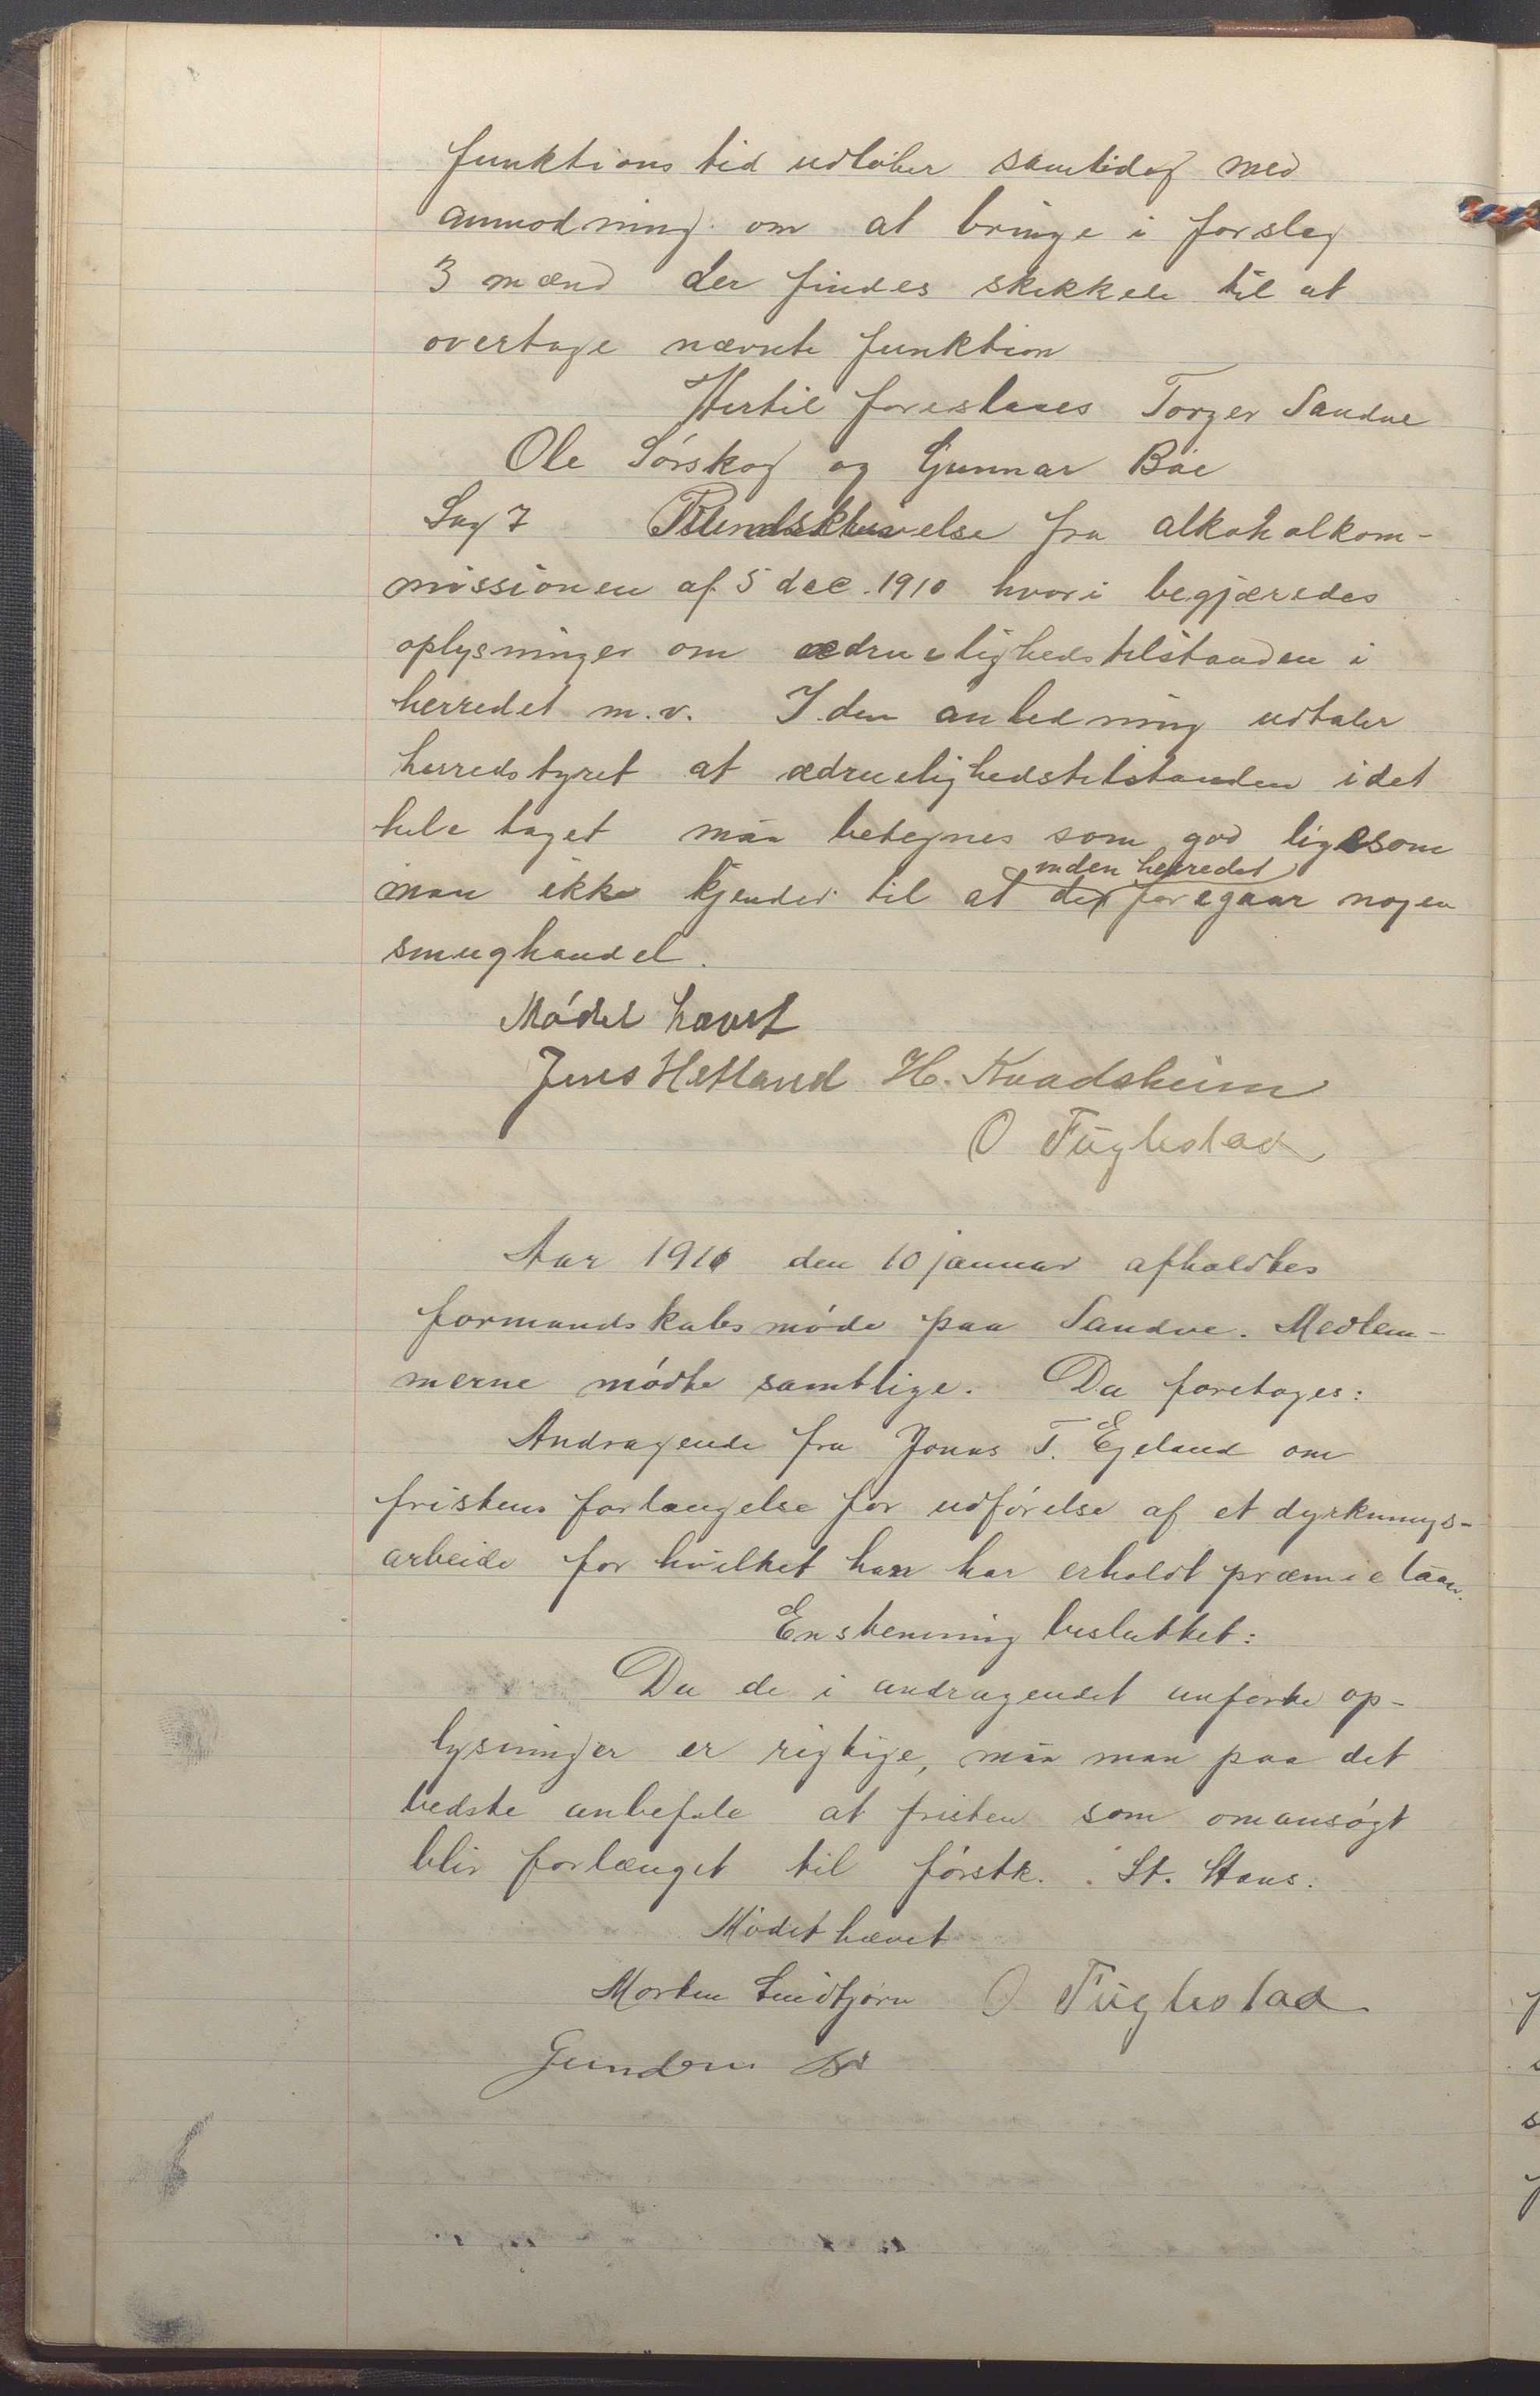 funktionstid udløber samtidig med
anmodning om at bringe i forslag
3 mænd der findes skikkede til at
overtage nævnte funktion
Hertil foreslaaes Torger Sandve
Ole Sørskog og Gunnar Böe
Sag 7 Rundskrivelse fra alkoholkom-
missionen af 5 dec. 1910 hvori begjæredes
oplysninger om ædruelighedstilstanden i
herredet m.v. I den anledning udtaler
herredstyret at ædruelighedstilstanden i det
hele taget maa betegnes som god ligesom
inden herredet
man ikke kjender til at der foregaar nogen
smughandel.
Mødet hævet
Jens Hetland H. Kvadsheim
O Fuglestad
Aar 1911 den 10 januar afholdtes
formandskabsmøde paa Sandve. Medlem-
merne mødte samtlige. Da foretoges:
Andragende fra Jonas T. Egeland om
fristens forlængelse for udførelse af et dyrknings-
arbeide for hvilket han har erholdt præmielaan.
Enstemmig besluttet:
Da de i andragendet anførte op-
lysninger er rigtige, maa man paa det
bedste anbefale at fristen som omansøgt
blir forlænget til førstk. St. Hans.
Mødet hævet
Morten O Fuglestad